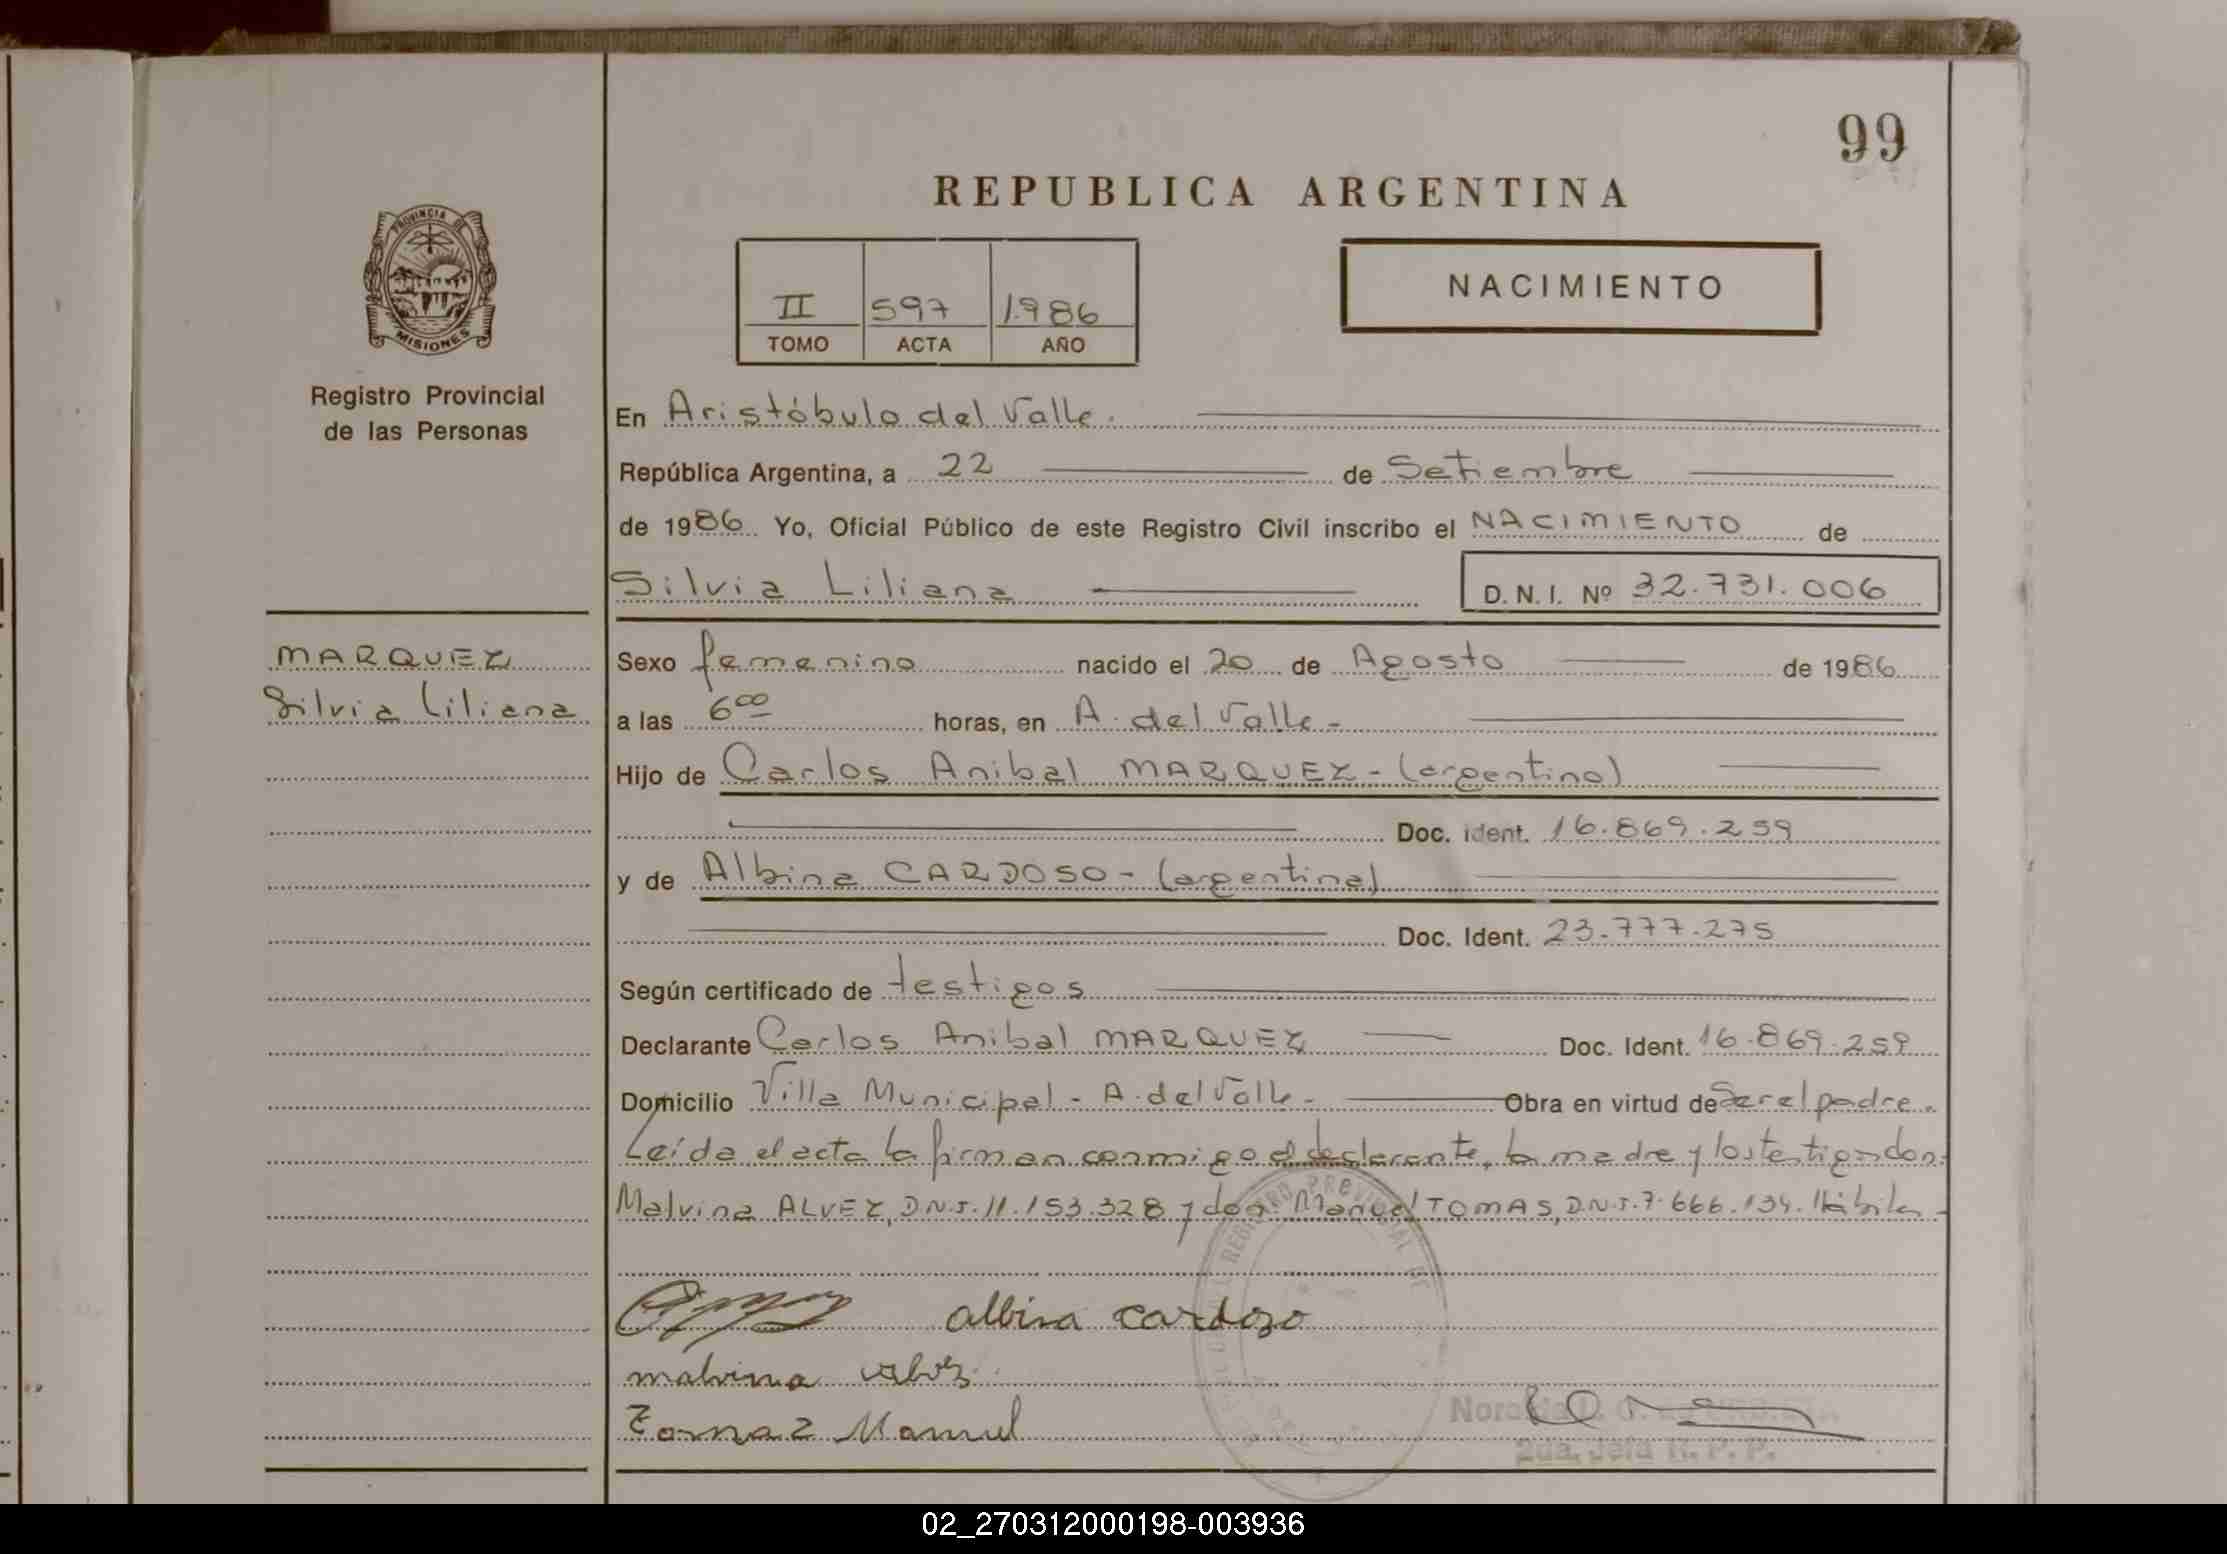 99
REPUBLICA ARGENTINA
PROVINCIA DE
MISIONES
Registro Provincial
de las Personas
II 597 1.986
TOMO ACTA AÑO
NACIMIENTO
En Aristóbulo del Valle.
República Argentina, a 22 de Setiembre
de 1986. Yo, Oficial Público de este Registro Civil inscribo el NACIMIENTO de
Silvia Liliana D. N. I. Nº 32.731.006
MARQUEZ
Silvia Liliana
Sexo femenino nacido el 20 de Agosto de 1986
a las 6 00 horas, en A. del Valle -
Hijo de Carlos Anibal MARQUEZ - (argentino)
Doc. ident. 16.869.259
y de Albina CARDOSO - (argentina)
Doc. Ident. 23.777.275
Según certificado de testigos
Declarante Carlos Anibal MARQUEZ Doc. Ident. 16.869.259
Domicilio Villa Municipal - A. del Valle - Obra en virtud de Ser el padre.
Leída el acta la firman conmigo el declarante, la madre y los testigos don:
Malvina ALVEZ, D.N.I. 11.153.328 y don: Manuel TOMAS, D.N.I. 7.666.134. Hábiles -
REGISTRO PROVINCIAL DE
albina cardozo
malvina
Tomaz Manuel
2da. Jefa R. P. P.
02_270312000198-003936